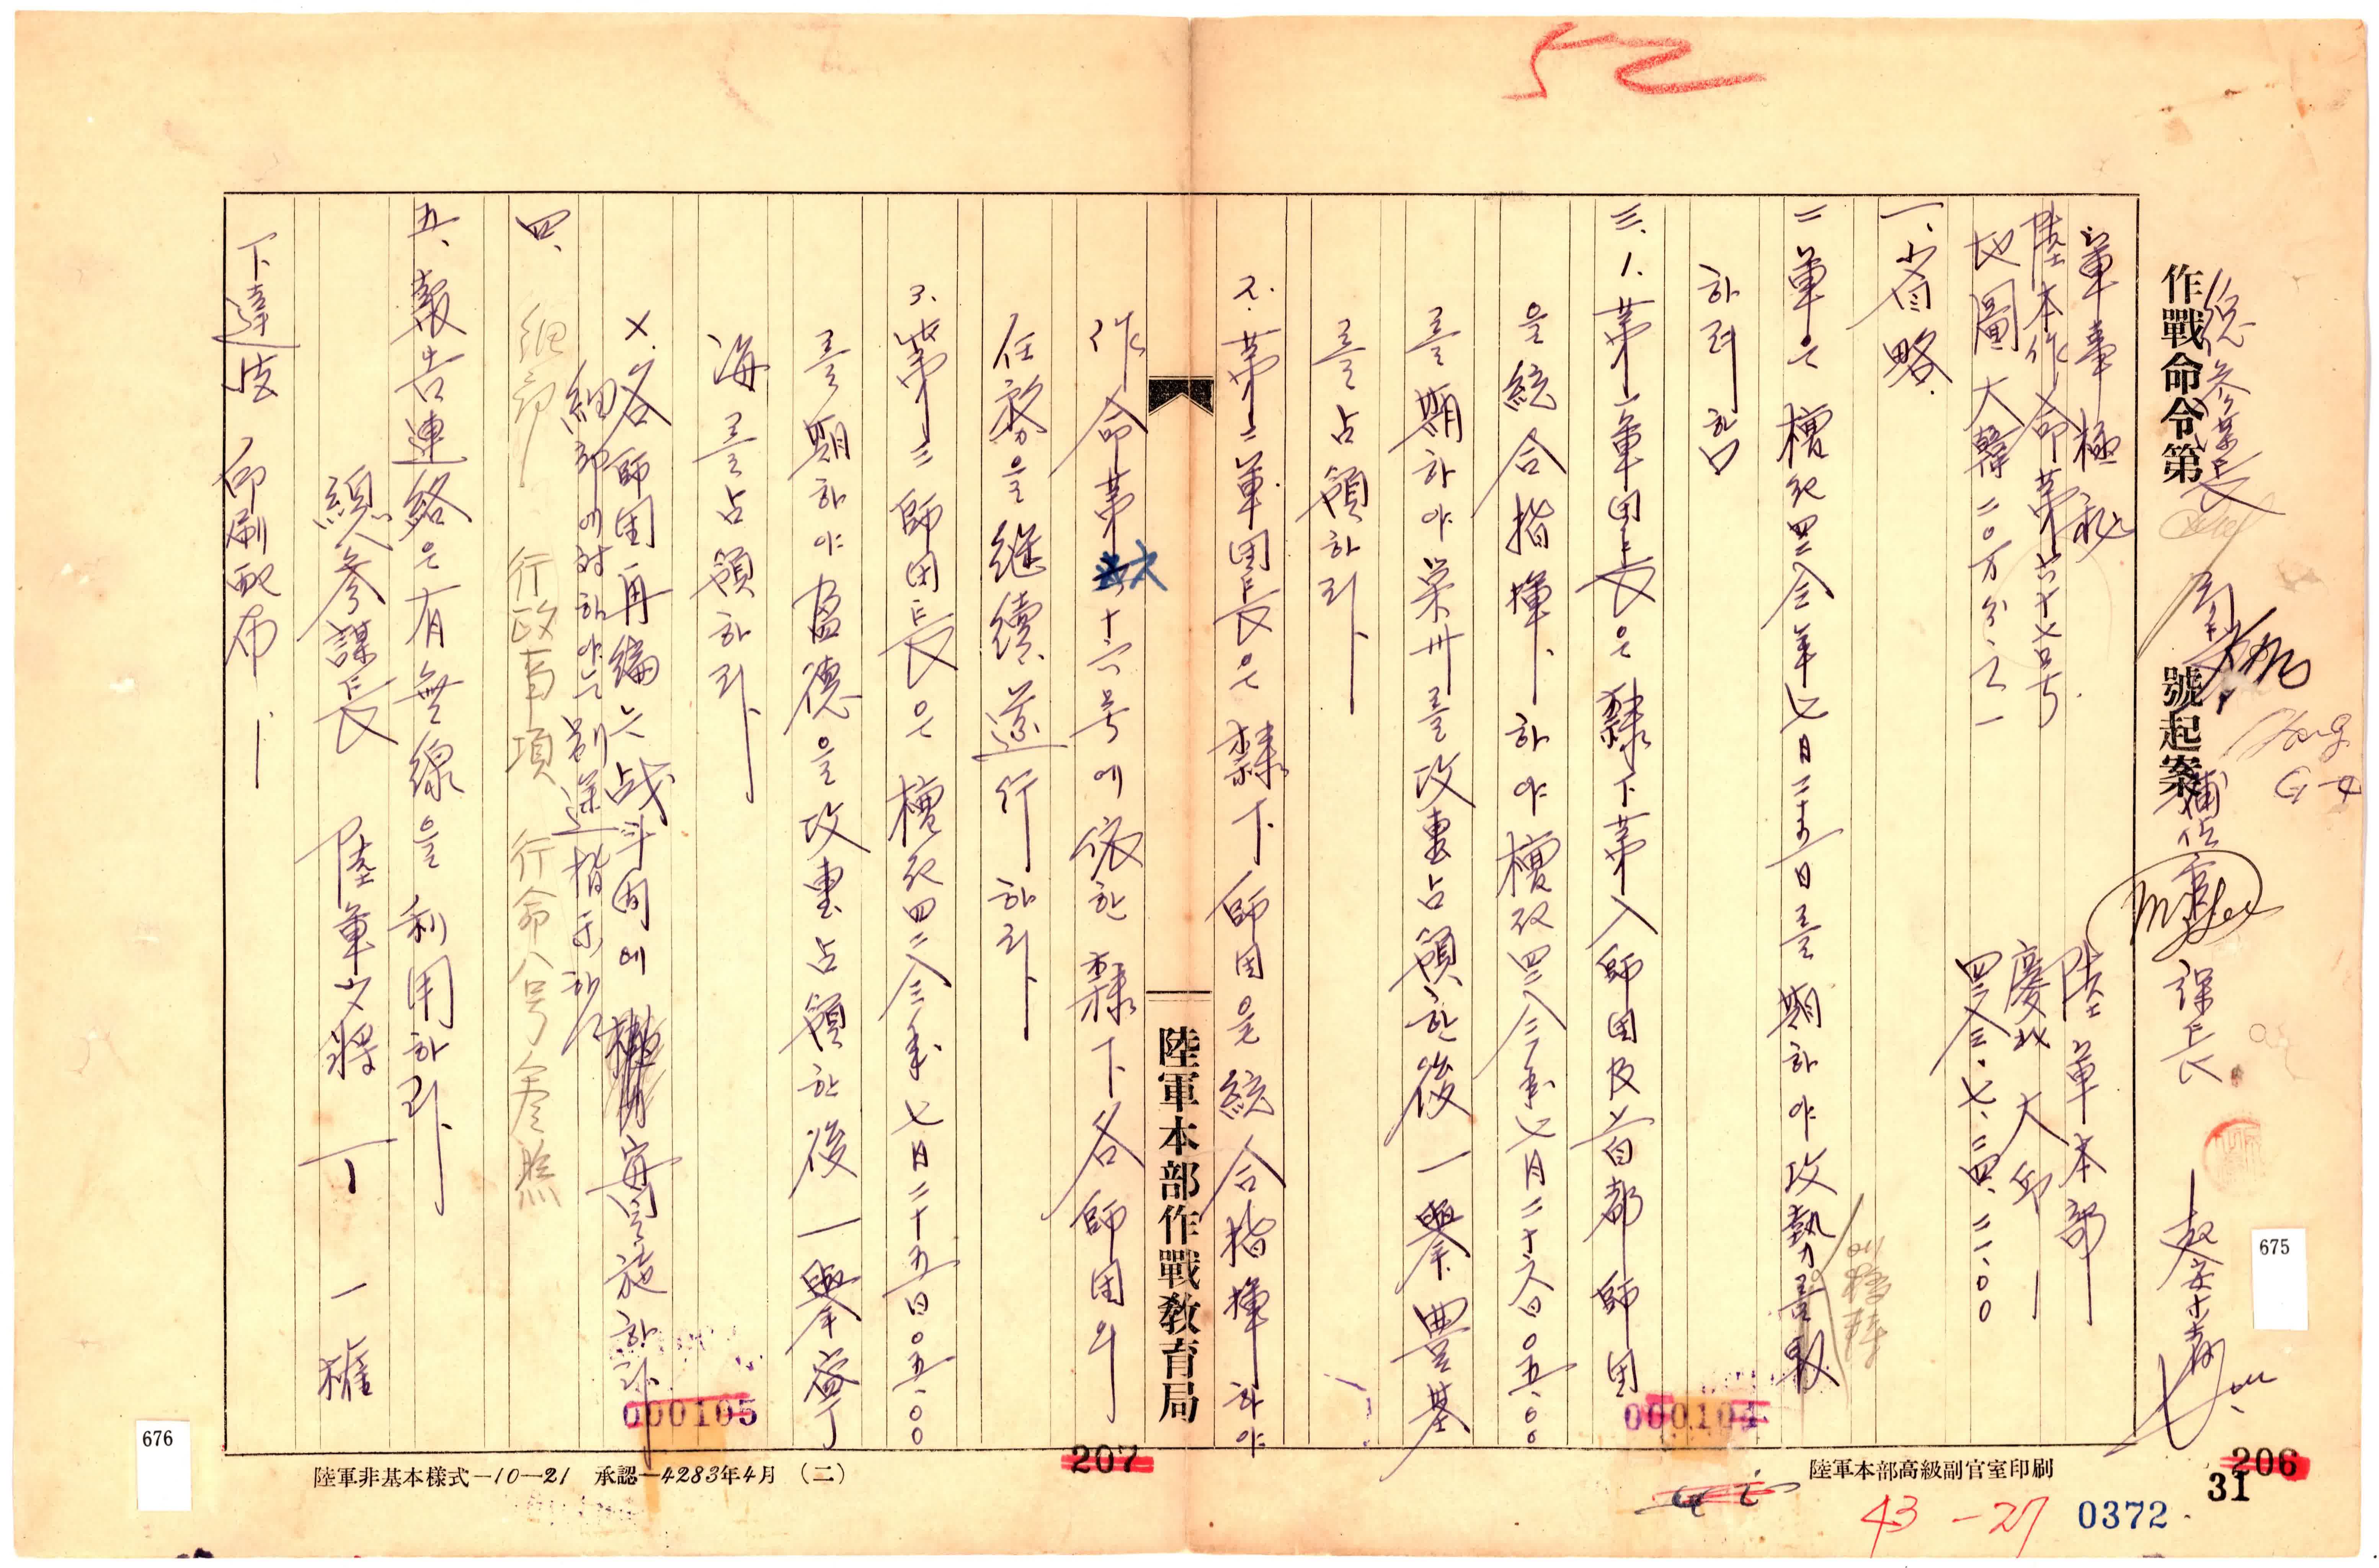 52
作戰命令第 號起案
總參謀長
補佐官
課長
G-4
軍事極秘
陸本作命第六十七号
陸軍本部
地圖大韓二〇万分之一
慶北 大邱
四二八三.七.二四.二一.〇〇
一、省略
二 軍은 檀紀四二八三年七月二十五日를期하야攻勢를取
하려함
三、1.第一軍団長은隸下第八師団及首都師団
을統合指揮하야檀紀四二八三年七月二十六日〇五.〇〇
를期하야栄州를攻擊占領한後一擧豊基
를占領하라
2.第二軍団長은隸下師団을統合指揮하야
作命第六十六号에依한隸下各師団의
任務을継續遂行하라
3.第三師団長은檀紀四二八三年七月二十五日〇五.〇〇
를期하야盈德을攻擊占領한後一擧寧
海를占領하라
X.各師団再編는战斗间에 実施하라
細部에対하야는別途指示함
四、細部 行政事項 行命八号参照
五、報告連絡은有無線을利用하라
總參謀長 陸軍少將 丁一權
下達法 印刷配布
陸軍本部作戰敎育局
000105
000104
207
206
31
675
676
陸軍非基本樣式—10—21 承認—4283年4月 (二)
陸軍本部高級副官室印刷
43-27
0372